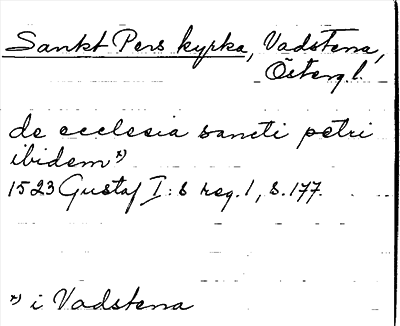 Sankt Pers kyrka, Vadstena,
Österg l.
de ecclesia sancti petri
ibidem x)
1523 Gustaf I:s reg. 1, s. 177.
x) i Vadstena